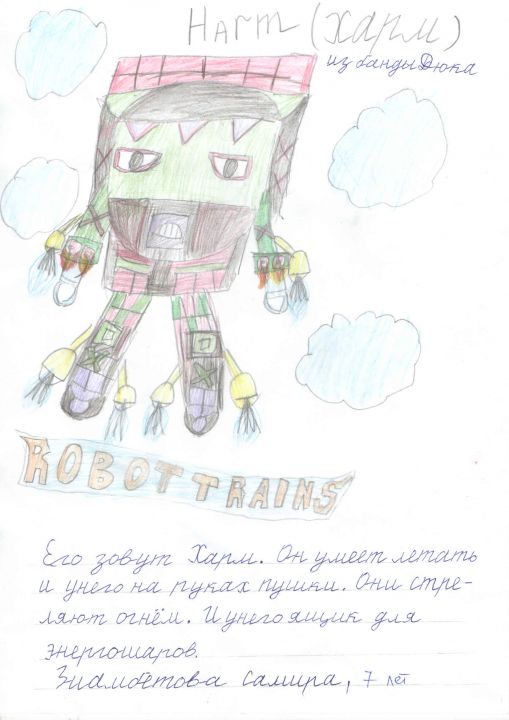 Harm (Харм)
из банды Дюка
ROBOT TRAINS
Его зовут Харм. Он умеет летать
и унего на руках пушки. Они стре-
ляют огнём. И унего ящик для
энергошаров.
Зиамбетова Самира, 7 лет